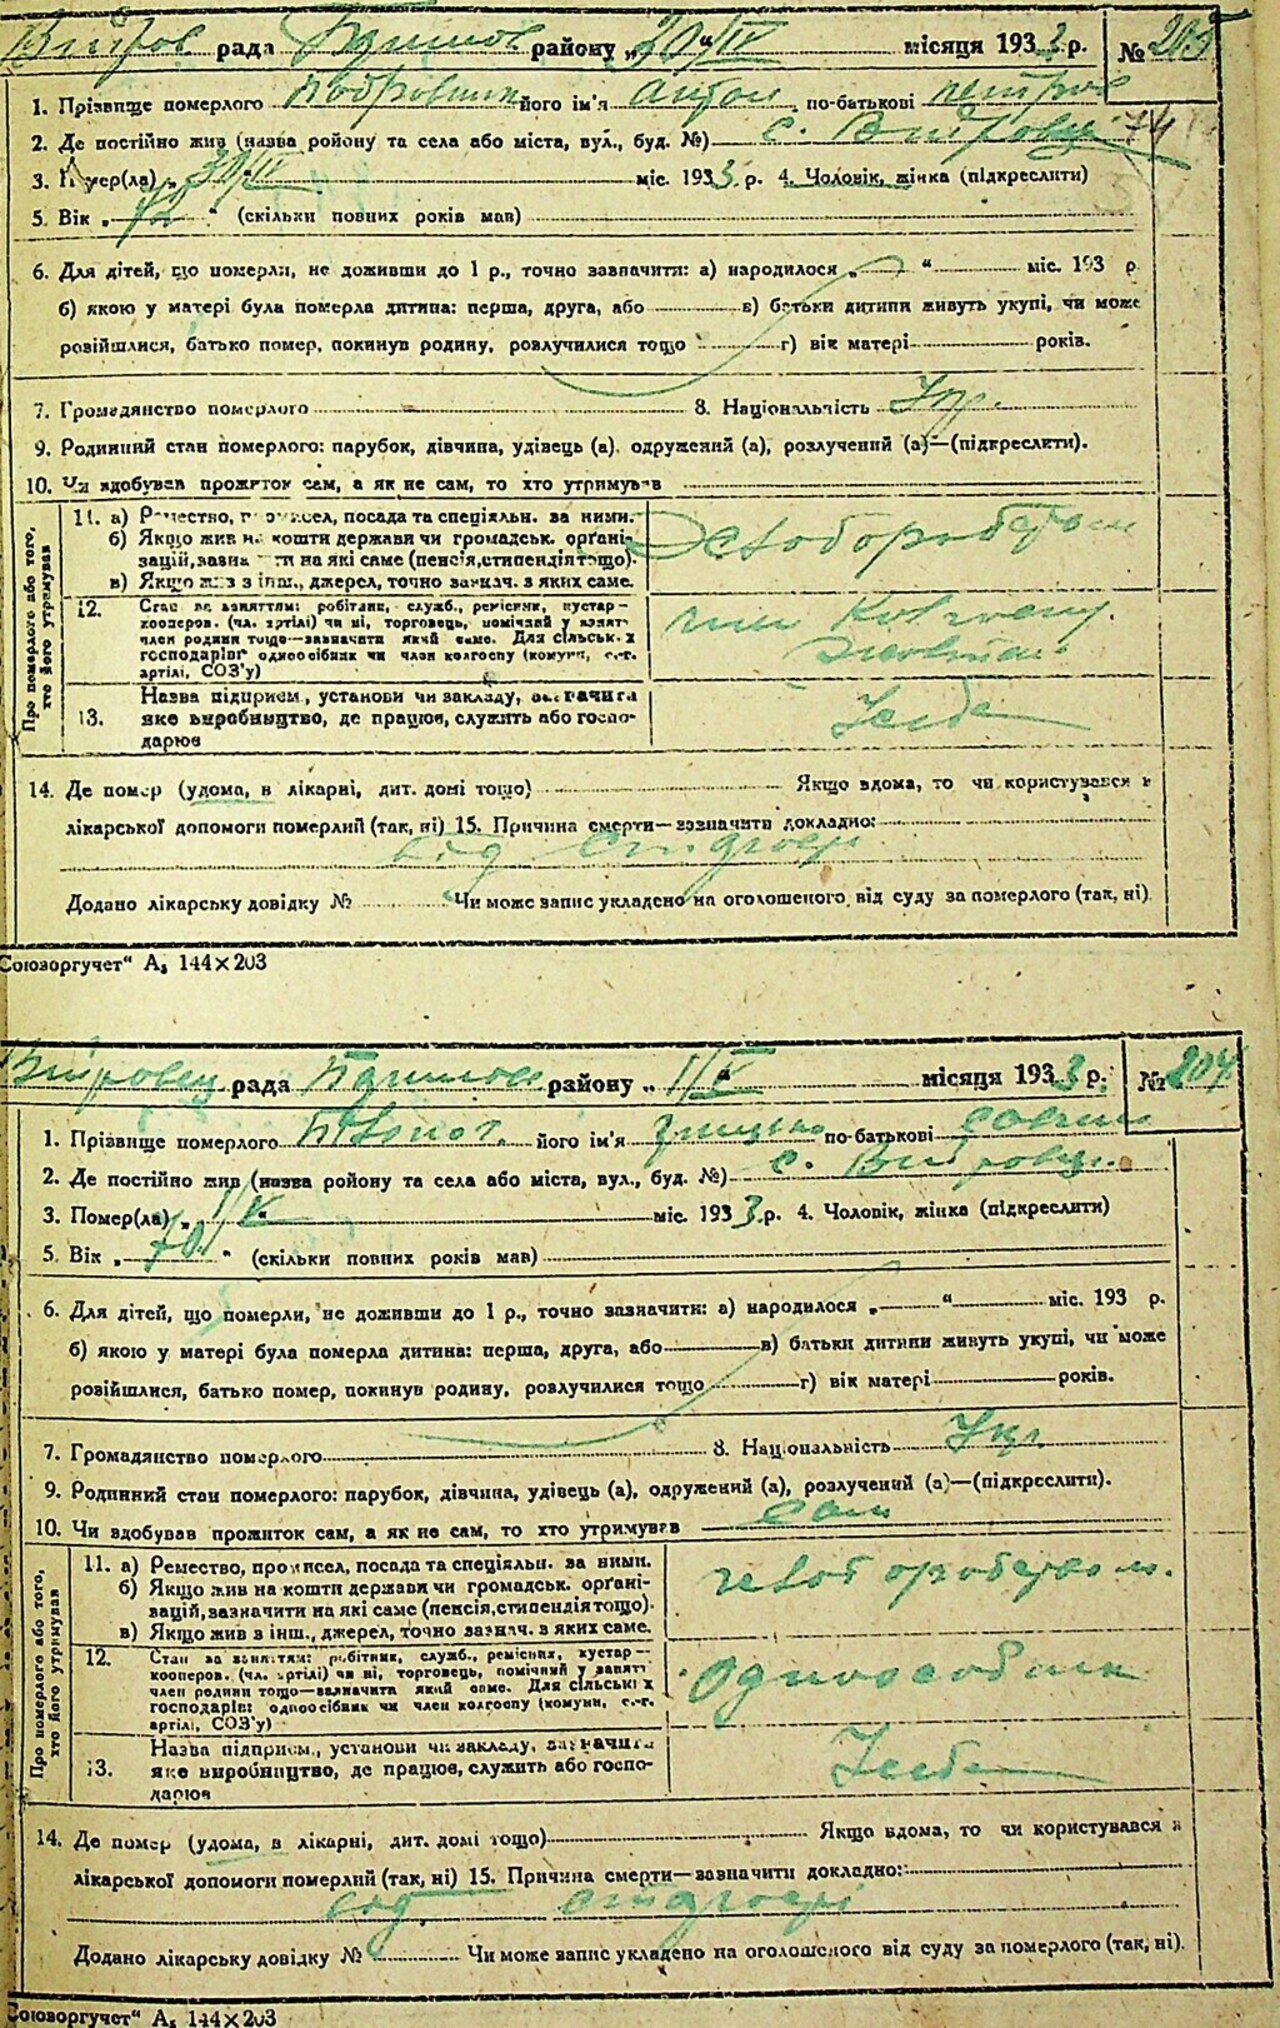 рада району „30/IV місяця 1933 р. № 205
1. Прізвище померлого його ім'я Антон по-батькові
2. Де постійно жив (назва ройону та села або міста, вул., буд. №) с.
3. Помер(ла) „30/IV міс. 1933 р. 4. Чоловік, жінка (підкреслити)
5. Вік „ “ (скільки повних років мав)
6. Для дітей, що померли, не доживши до 1 р., точно зазначити: а) народилося „ “ міс. 193 р
б) якою у матері була померла дитина: перша, друга, або в) батьки дитини живуть укупі, чи може
розійшлися, батько помер, покинув родину, розлучилися тощо г) вік матері років.
7. Громадянство померлого 8. Національність Укр.
9. Родинний стан померлого: парубок, дівчина, удівець (а), одружений (а), розлучений (а)—(підкреслити).
10. Чи здобував прожиток сам, а як не сам, то хто утримував
Про померлого або того, хто його утримував
11. а) Ремество, промисел, посада та спеціяльн. за ними.
б) Якщо жив на кошти держави чи громадськ. орґані-
зацій, зазначити на які саме (пенсія, стипендія тощо).
в) Якщо жив з інш., джерел, точно зазнач. з яких саме.
хлебороброт
12. Стан за заняттям: робітник, служб., ремісник, кустар—
кооперов. (чл. артілі) чи ні, торговець, помічний у занятт
член родини тощо—зазначити який саме. Для сільськ. х
господарів: одноосібник чи член колгоспу (комуни, с.-г.
артілі, СОЗ'у)
13. Назва підприєм., установи чи закладу, зазначити
яке виробництво, де працює, служить або госпо-
дарює
14. Де помер (удома, в лікарні, дит. домі тощо) Якщо вдома, то чи користувався в
лікарської допомоги померлий (так, ні) 15. Причина смерти—зазначити докладно:
від
Додано лікарську довідку № Чи може запис укладено на оголошеного від суду за померлого (так, ні)
Союзоргучет“ А₅ 144×203
рада району „1/V місяця 1933 р. № 204
1. Прізвище померлого його ім'я по-батькові
2. Де постійно жив (назва ройону та села або міста, вул., буд. №) с.
3. Помер(ла) „1/V міс. 1933 р. 4. Чоловік, жінка (підкреслити)
5. Вік „70 “ (скільки повних років мав)
6. Для дітей, що померли, не доживши до 1 р., точно зазначити: а) народилося „ “ міс. 193 р.
б) якою у матері була померла дитина: перша, друга, або в) батьки дитини живуть укупі, чи може
розійшлися, батько помер, покинув родину, розлучилися тощо г) вік матері років.
7. Громадянство померлого 8. Національність Укр.
9. Родинний стан померлого: парубок, дівчина, удівець (а), одружений (а), розлучений (а)—(підкреслити).
10. Чи здобував прожиток сам, а як не сам, то хто утримував сам
Про померлого або того, хто його утримував
11. а) Ремество, промисел, посада та спеціяльн. за ними.
б) Якщо жив на кошти держави чи громадськ. орґані-
зацій, зазначити на які саме (пенсія, стипендія тощо).
в) Якщо жив з інш., джерел, точно зазнач. з яких саме.
12. Стан за заняттям: робітник, служб., ремісник, кустар—
кооперов. (чл. артілі) чи ні, торговець, помічний у занятт
член родини тощо—зазначити який саме. Для сільські х
господарів: одноосібник чи член колгоспу (комуни, с.-г.
артілі, СОЗ'у)
Одноособник
13. Назва підприєм., установи чи закладу, зазначити
яке виробництво, де працює, служить або госпо-
дарює
14. Де помер (удома, в лікарні, дит. домі тощо) Якщо вдома, то чи користувався в
лікарської допомоги померлий (так, ні) 15. Причина смерти—зазначити докладно:
від
Додано лікарську довідку № Чи може запис укладено на оголошеного від суду за померлого (так, ні).
Союзоргучет“ А₅ 144×203